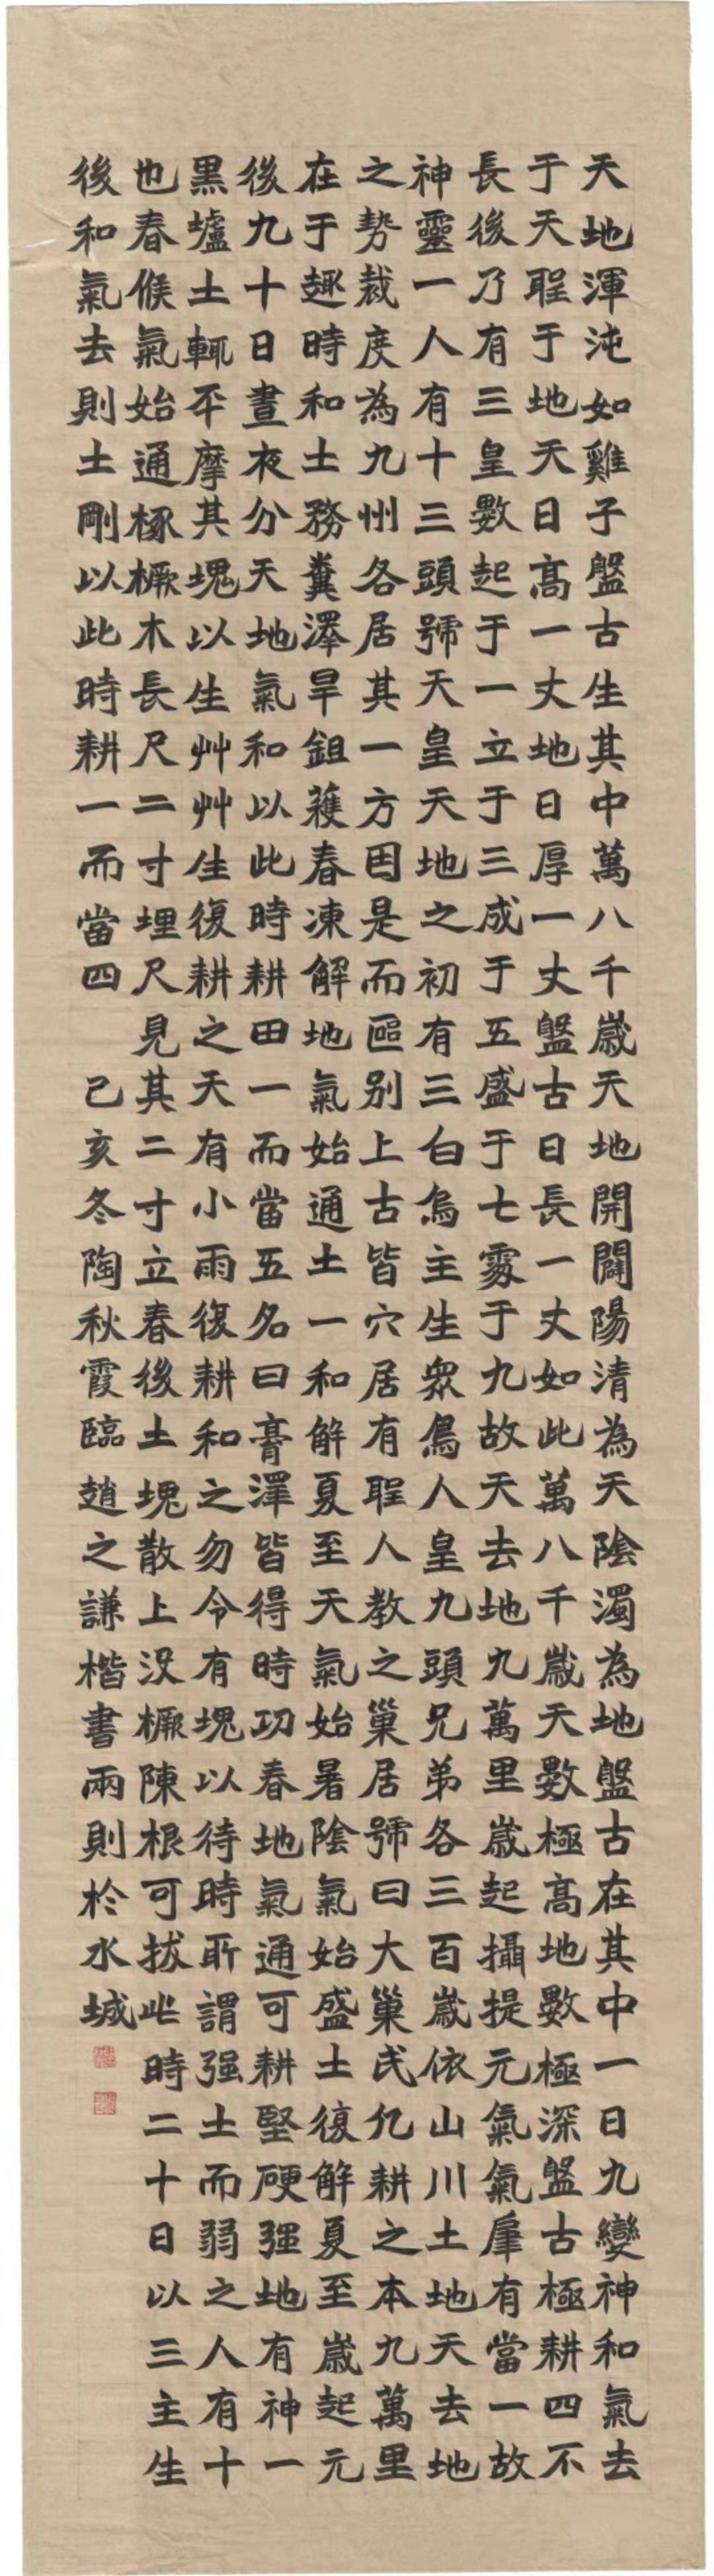 天地渾沌如雞子盤古生其中萬八千歲天地開闢陽清為天陰濁為地盤古在其中一日九變神和氣去
于天聖于地天日高一丈地日厚一丈盤古日長一丈如此萬八千歲天數極高地數極深盤古極耕四不
長後乃有三皇數起于一立于三成于五盛于七處于九故天去地九萬里歲起攝提元氣氣肇有當一故
神靈一人有十三頭號天皇天地之初有三白烏主生眾鳥人皇九頭兄弟各三百歲依山川土地天去地
之勢裁度為九州各居其一方因是而區別上古皆穴居有聖人教之巢居號曰大巢氏凡耕之本九萬里
在于趣時和土務糞澤旱鉏穫春凍解地氣始通土一和解夏至天氣始暑陰氣始盛土復解夏至歲起元
後九十日晝夜分天地氣和以此時耕田一而當五名曰膏澤皆得時功春地氣通可耕堅硬强地有神一
黑壚土輒平摩其塊以生艸艸生復耕之天有小雨復耕和之勿令有塊以待時所謂强土而弱之人有十
也春候氣始通椓橛木長尺二寸埋尺見其二寸立春後土塊散上沒橛陳根可拔此時二十日以三主生
後和氣去則土剛以此時耕一而當四 己亥冬陶秋霞臨趙之謙楷書兩則於水城